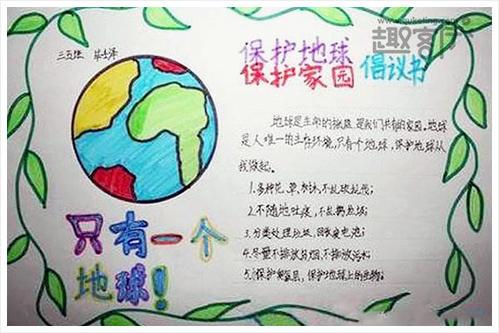 趣客厅
三五班
保护地球
保护家园 倡议书
地球是生命的摇篮,是我们共有的家园。地球
是人唯一的生存环境,只有个地球,保护地球从
我做起。
1.多种花、草、树木,不乱砍乱伐;
2.不随地吐痰,不乱扔垃圾;
3.分类处理垃圾,回收废电池;
4.尽量不排放
5.保护
保护地球上的生物;
只有一个
地球!